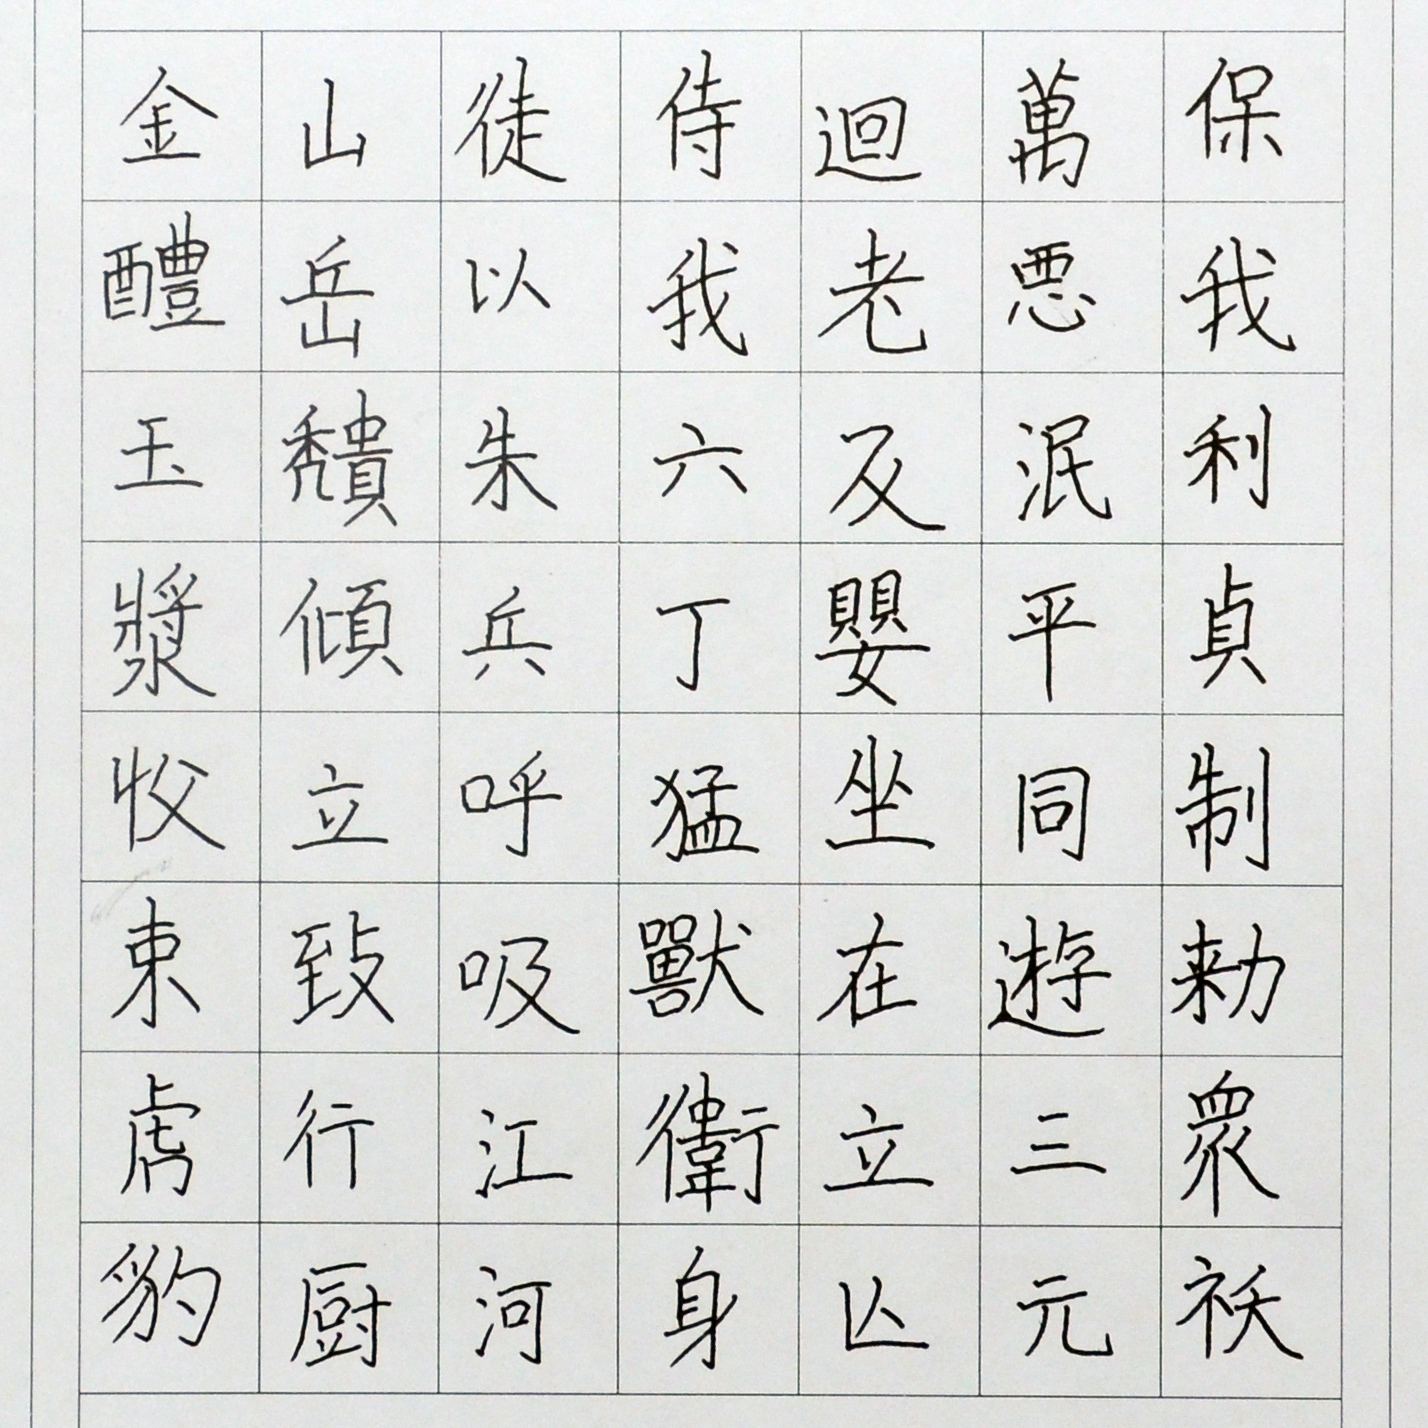 保我利貞制勑眾祅
萬悪泯平同遊三元
迴老反嬰坐在立亾
侍我六丁猛獸衛身
徒以朱兵呼吸江河
山岳穨傾立致行厨
金醴玉漿收束虎豹